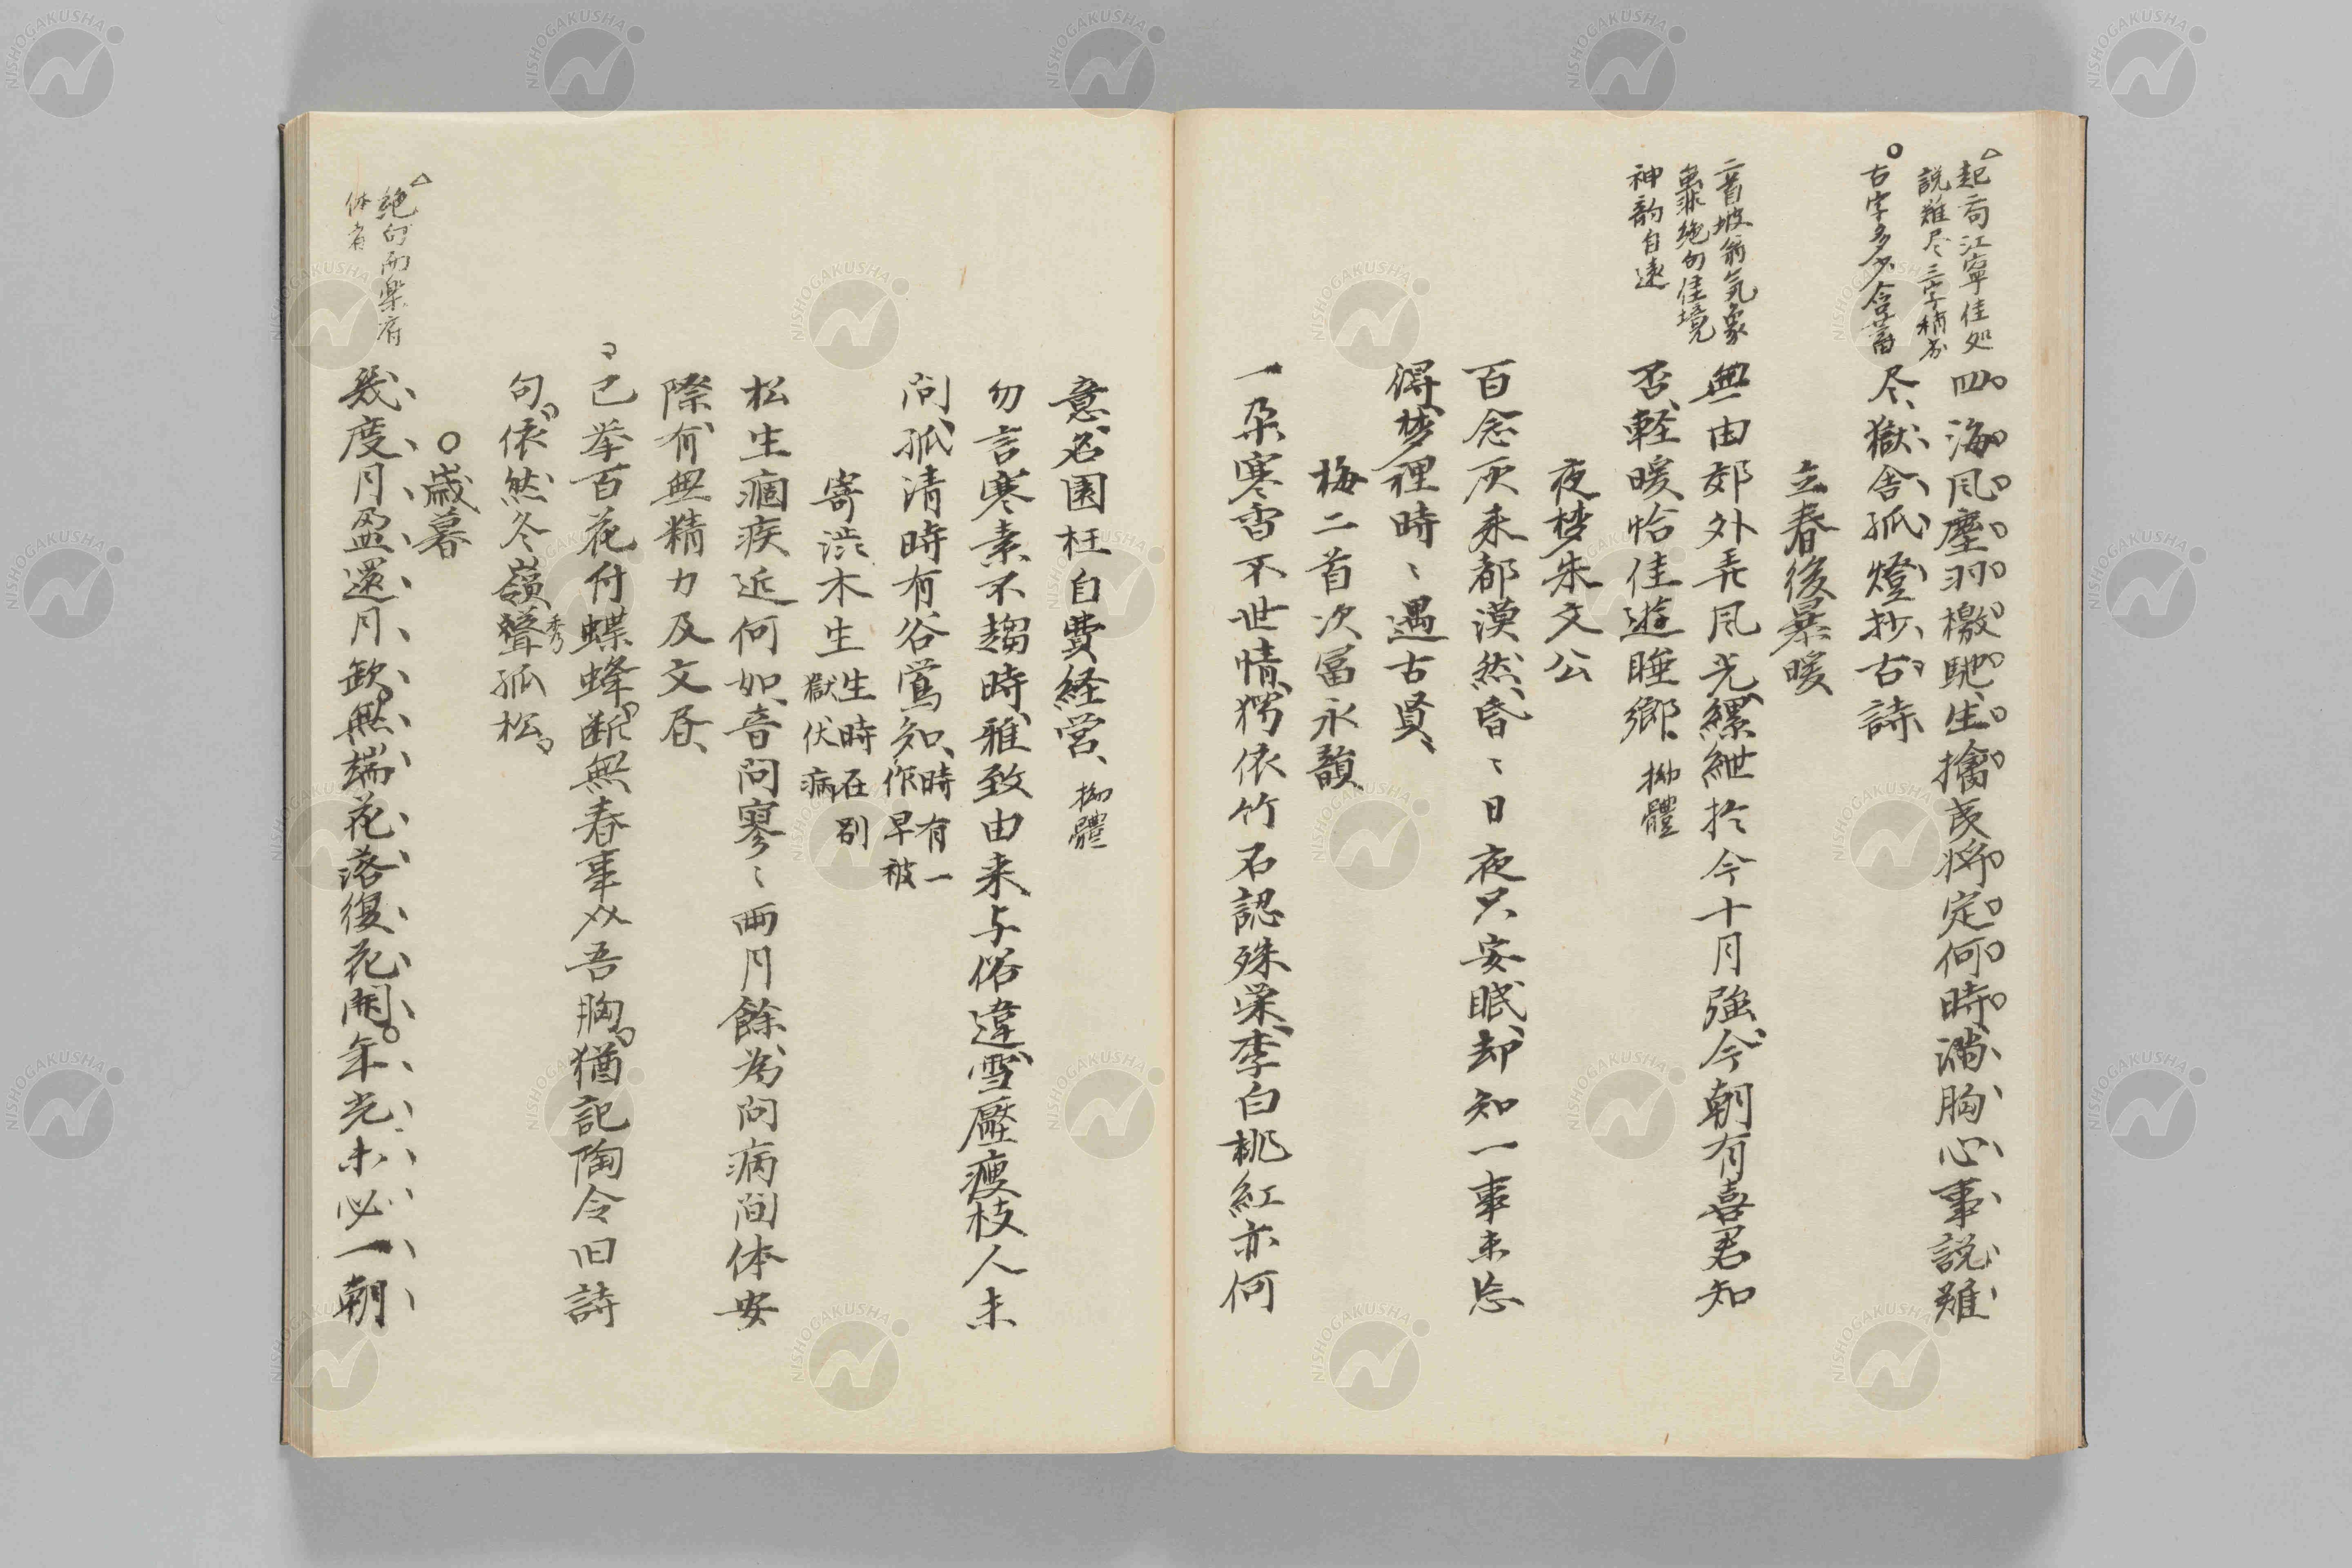 起句江寧佳処
説難尽三字稍劣
古字多少含蓄
四海風塵羽檄馳生擒夷将定何時満胸心事説難
尽獄舎孤燈抄古詩
立春後暴暖
二首坡翁気象
雖非絶句佳境
神韵自遠
無由郊外弄風光縲紲於今十月強今朝有喜君知
否軽暖恰佳遊睡郷 拗體
夜梦朱文公
百念灰来都漠然昏〻日夜只安眠却知一事未忘
得梦裡時〻遇古賢
梅二首次冨永韻
一朶寒香不世情猶依竹石認殊栄李白桃紅亦何
意名園枉自費経営 拗體
勿言寒素不趨時雅致由来与俗違雪壓痩枝人未
問孤清時有谷鴬知 時有一
作早被
寄渋木生 生時在別
獄伏病
松生痼疾近何如音問寥〻両月餘為問病間体安
際有無精力及文居
已挙百花付蝶蜂断無春事双吾胸猶記陶令旧詩
句依然冬嶺聳孤松
秀
歳暮
絶句而楽府
体者
幾度月盈還月欽無端花落復花開年光未必一朝